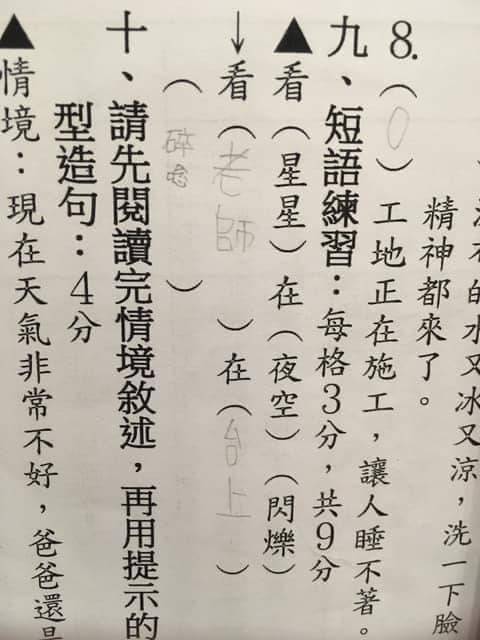 的水又冰又涼，洗一下臉
精神都來了。
8.（0）工地正在施工，讓人睡不著。
九、短語練習：每格3分，共9分
▲看（星星）在（夜空）（閃爍）
↓看（老師）在（台上）
（碎唸）
十、請先閱讀完情境敘述，再用提示的
型造句：4分
▲情境：現在天氣非常不好，爸爸還是